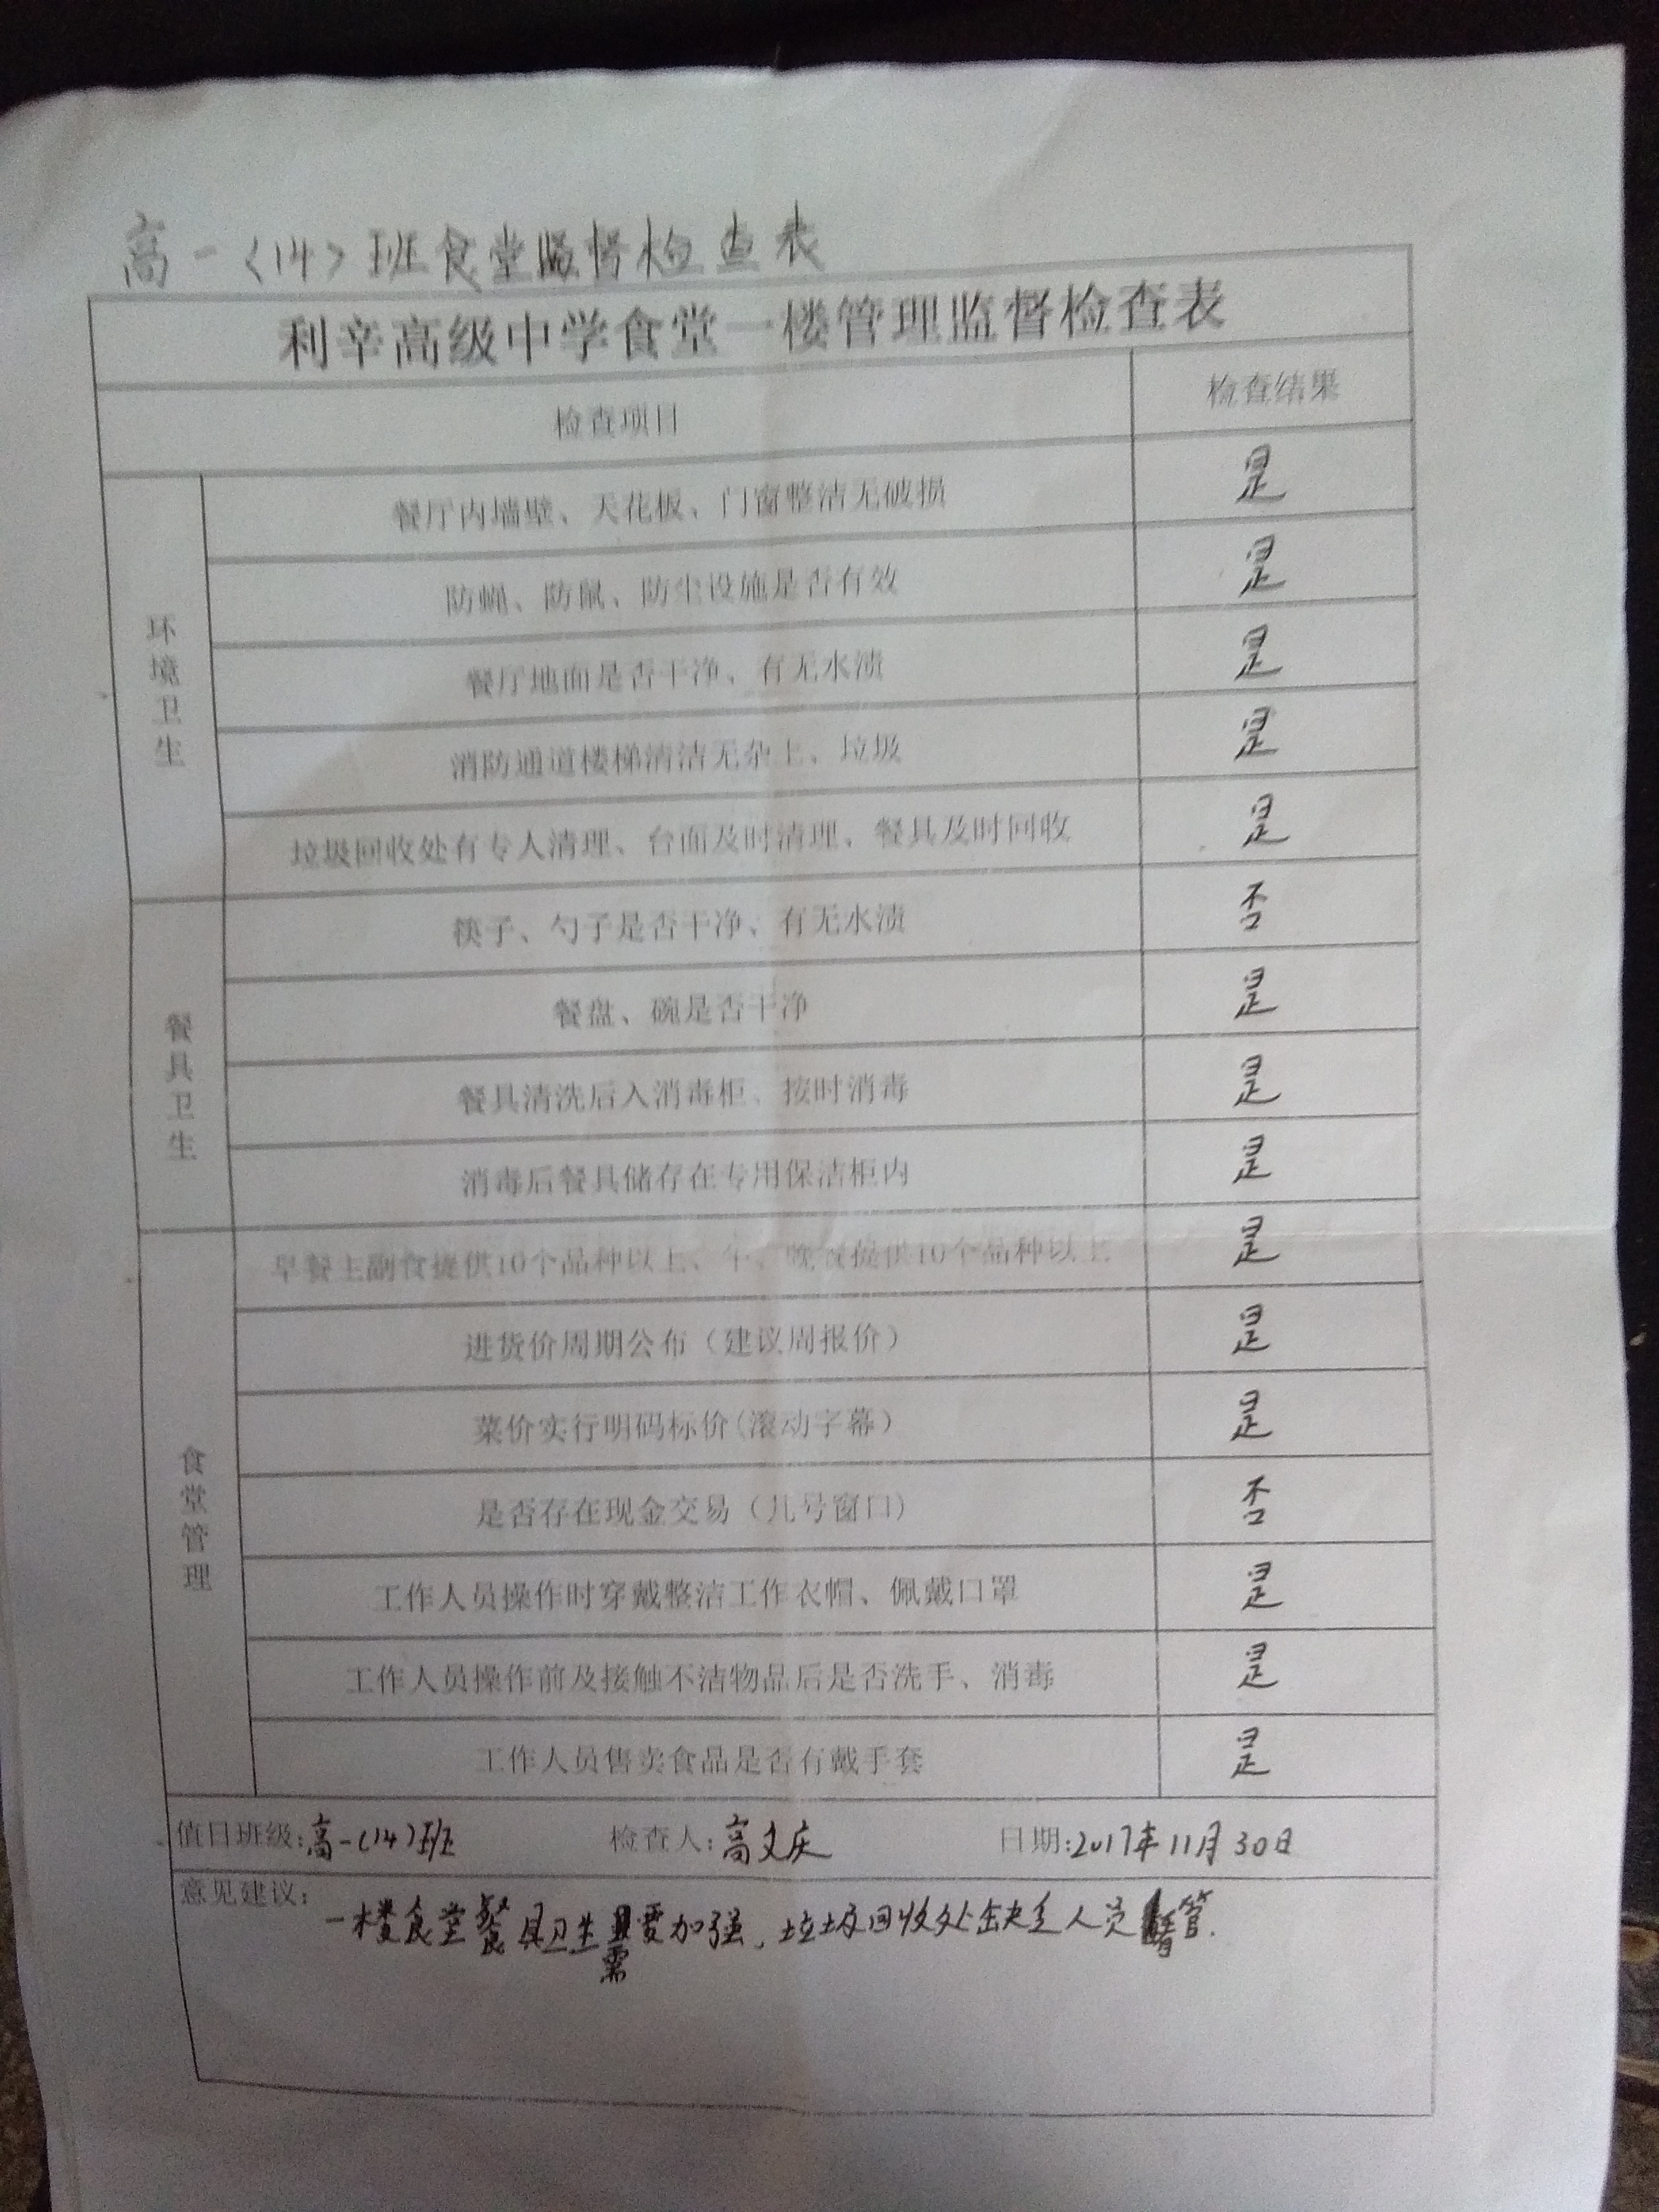 高一〈14〉班食堂监督检查表
利辛高级中学食堂一楼管理监督检查表
检查项目 检查结果
环境卫生
餐厅内墙壁、天花板、门窗整洁无破损 是
防蝇、防鼠、防尘设施是否有效 是
餐厅地面是否干净、有无水渍 是
消防通道楼梯清洁无杂土、垃圾 是
垃圾回收处有专人清理、台面及时清理、餐具及时回收 是
餐具卫生
筷子、勺子是否干净、有无水渍 否
餐盘、碗是否干净 是
餐具清洗后入消毒柜、按时消毒 是
消毒后餐具储存在专用保洁柜内 是
食堂管理
早餐主副食提供10个品种以上、午、晚餐提供10个品种以上 是
进货价周期公布（建议周报价） 是
菜价实行明码标价(滚动字幕） 是
是否存在现金交易（几号窗口） 否
工作人员操作时穿戴整洁工作衣帽、佩戴口罩 是
工作人员操作前及接触不洁物品后是否洗手、消毒 是
工作人员售卖食品是否有戴手套 是
值日班级:高一(14)班 检查人:高文庆 日期:2017年11月30日
意见建议:
一楼食堂餐具卫生需要加强、垃圾回收处缺乏人员管.